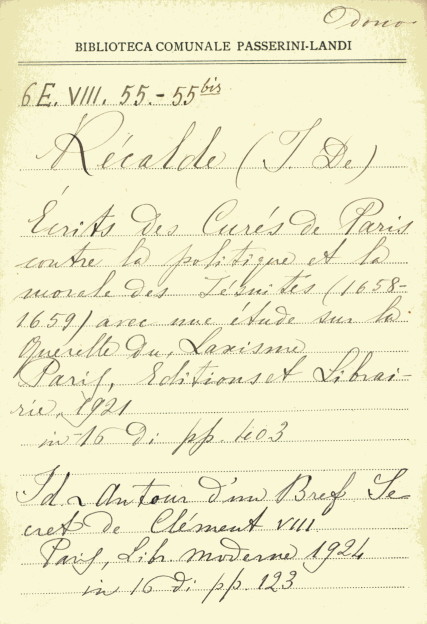 Odono
BIBLIOTECA COMUNALE PASSERINI-LANDI
6E. VIII. 55.-55 bis
Récalde (I. De)
Écrits des Curés de Paris
contre la politique et la
morale des Jésuités (1658-
1659) avec une étude sur la
Querelle du Laxisme
Paris, Editions et Librai-
rie, 1921
in 16 di pp. 403
Id ~ Autour d'un Bref Se-
cret de Clément VIII
Paris, Libr. Moderne 1924
in 16 di pp. 123